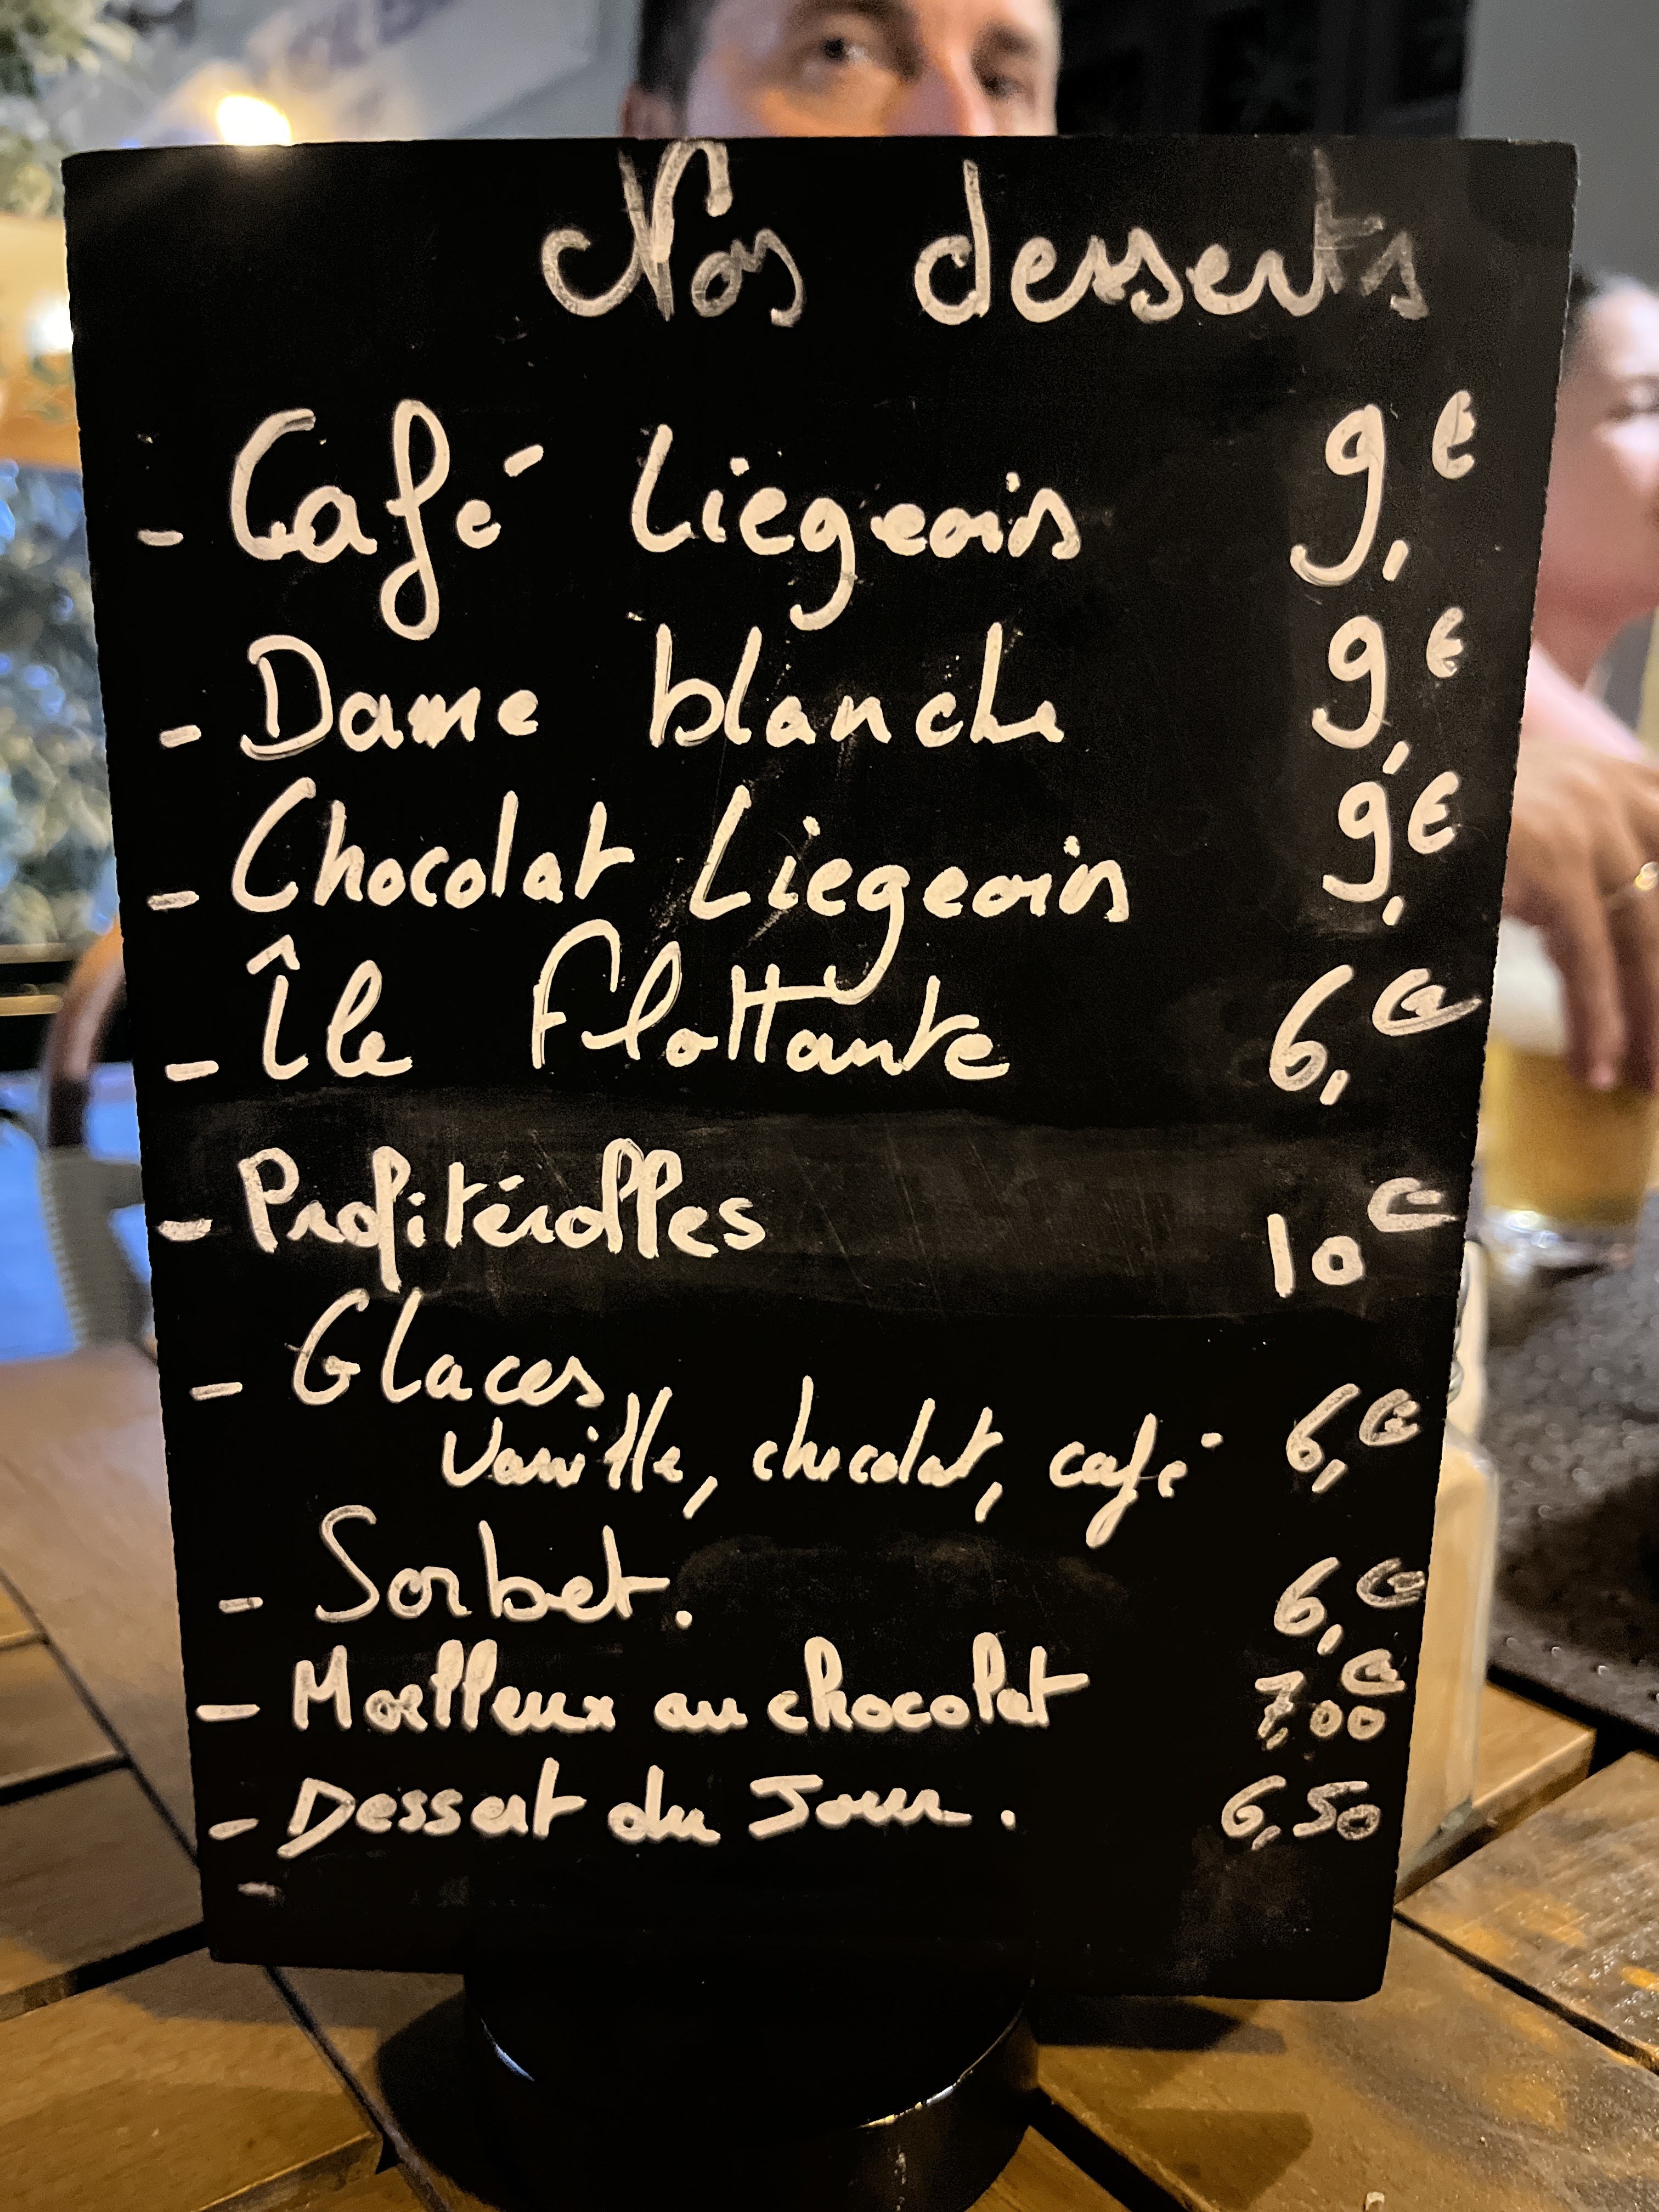 Nos desserts
- Café Liegeois 9,€
- Dame blanche 9,€
- Chocolat Liegeois 9,€
- Île Flottante 6,€
- Profitérolles 10€
- Glaces
Vanille, chocolat, café 6,€
- Sorbet. 6,€
- Moelleux au chocolat 7,00€
- Dessert du Jour. 6,50
-